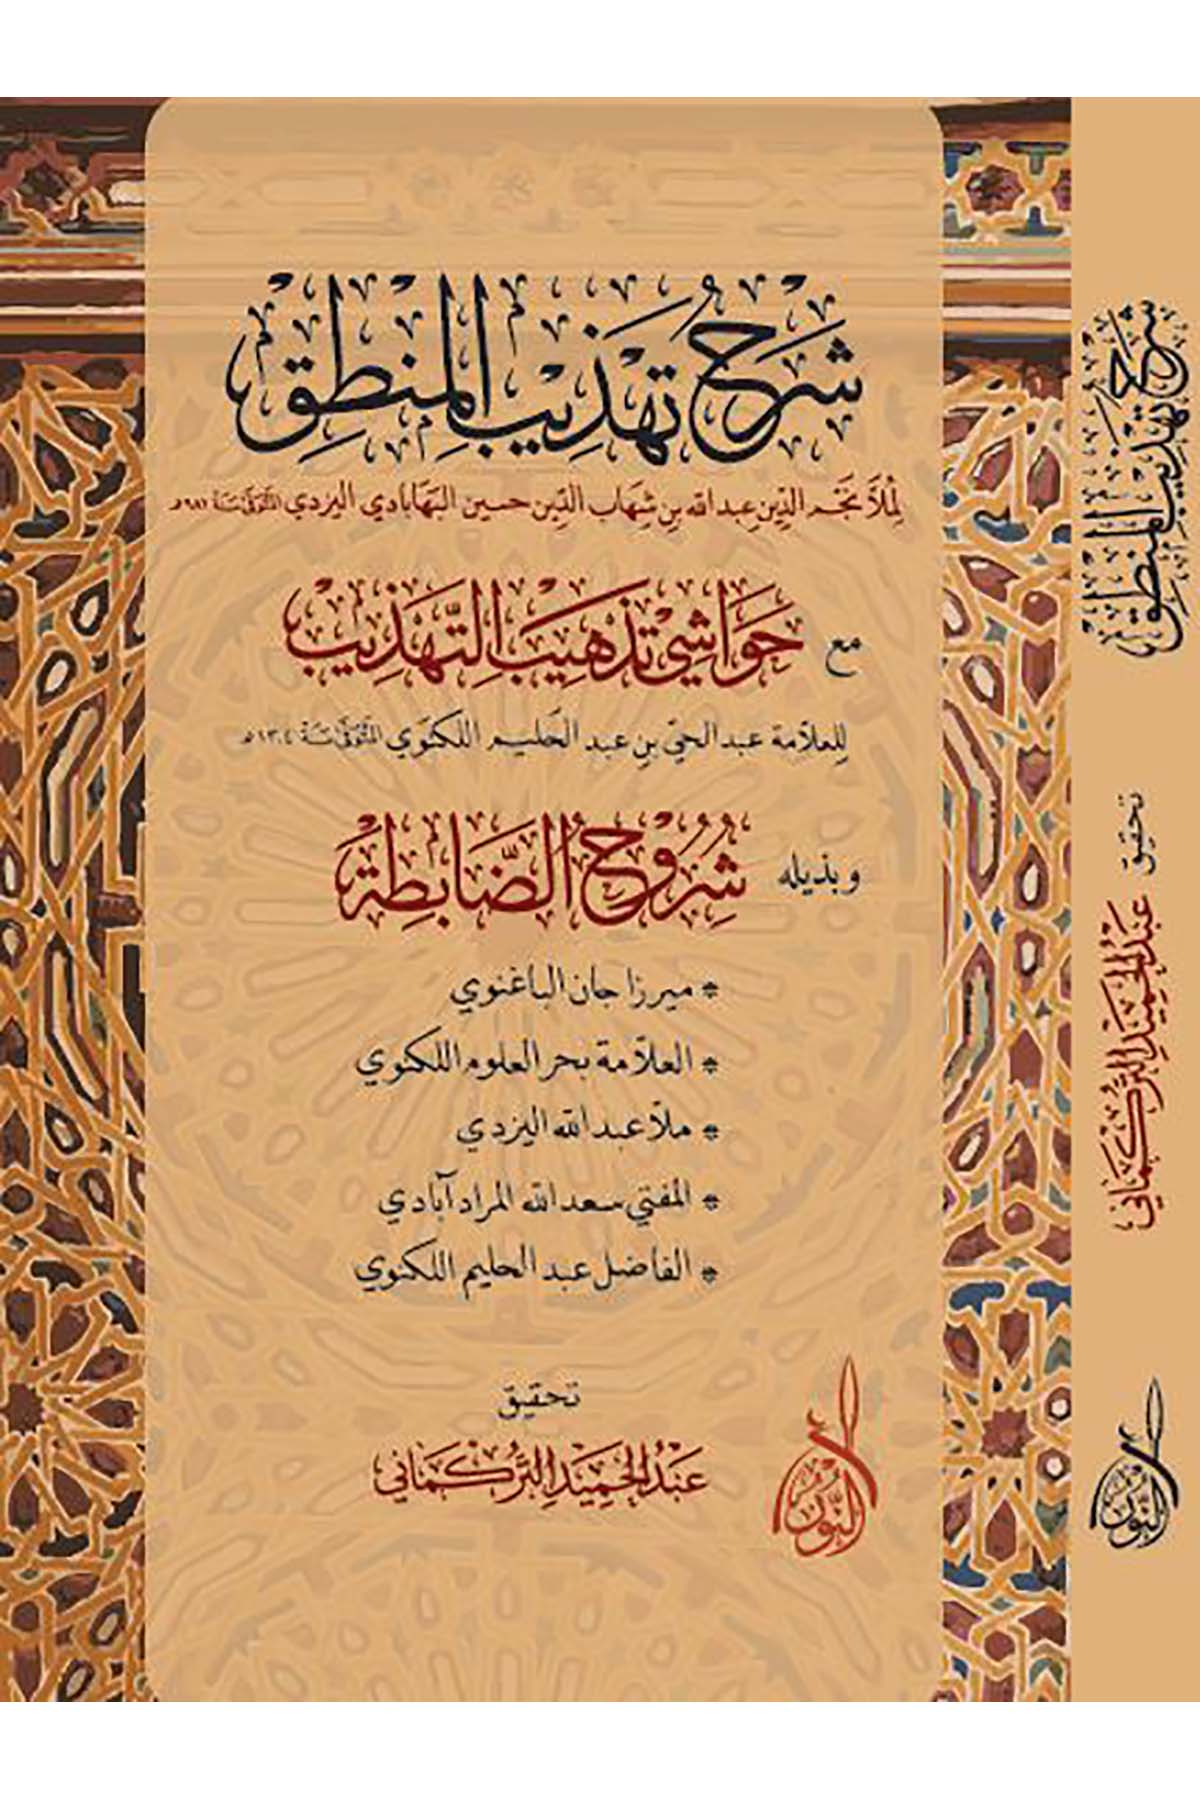 شَرْحُ تَهْذِيبِ الْمَنْطِقِ
لِمُلَّا نَجْم الدِّين عبد الله بن شِهَاب الدِّين حسين البَهَابَادي اليزدي المُتَوَفَّى سَنَة ٩٨١هـ
مع حَوَاشِي تَذْهِيبِ التَّهْذِيبِ
لِلعلّامة عبد الحيّ بن عبد الحَليم اللكنَوي المُتَوَفَّى سَنَة ١٣٠٤هـ
وبذيله شُرُوحُ الضَّابِطَةِ
* ميرزا جان الباغنوي
* العلّامة بحر العلوم اللكنوي
* ملّا عبد الله اليزدي
* المفتي سعد الله المراد آبادي
* الفاضل عبد الحليم اللكنوي
تحقيق
عَبْدُ الحَمِيدِ التُّرْكُمَانِي
النُّور
شَرْحُ تَهْذِيبِ الْمَنْطِقِ
تحقيق
عَبْدُ الحَمِيدِ التُّرْكُمَانِي
النُّور